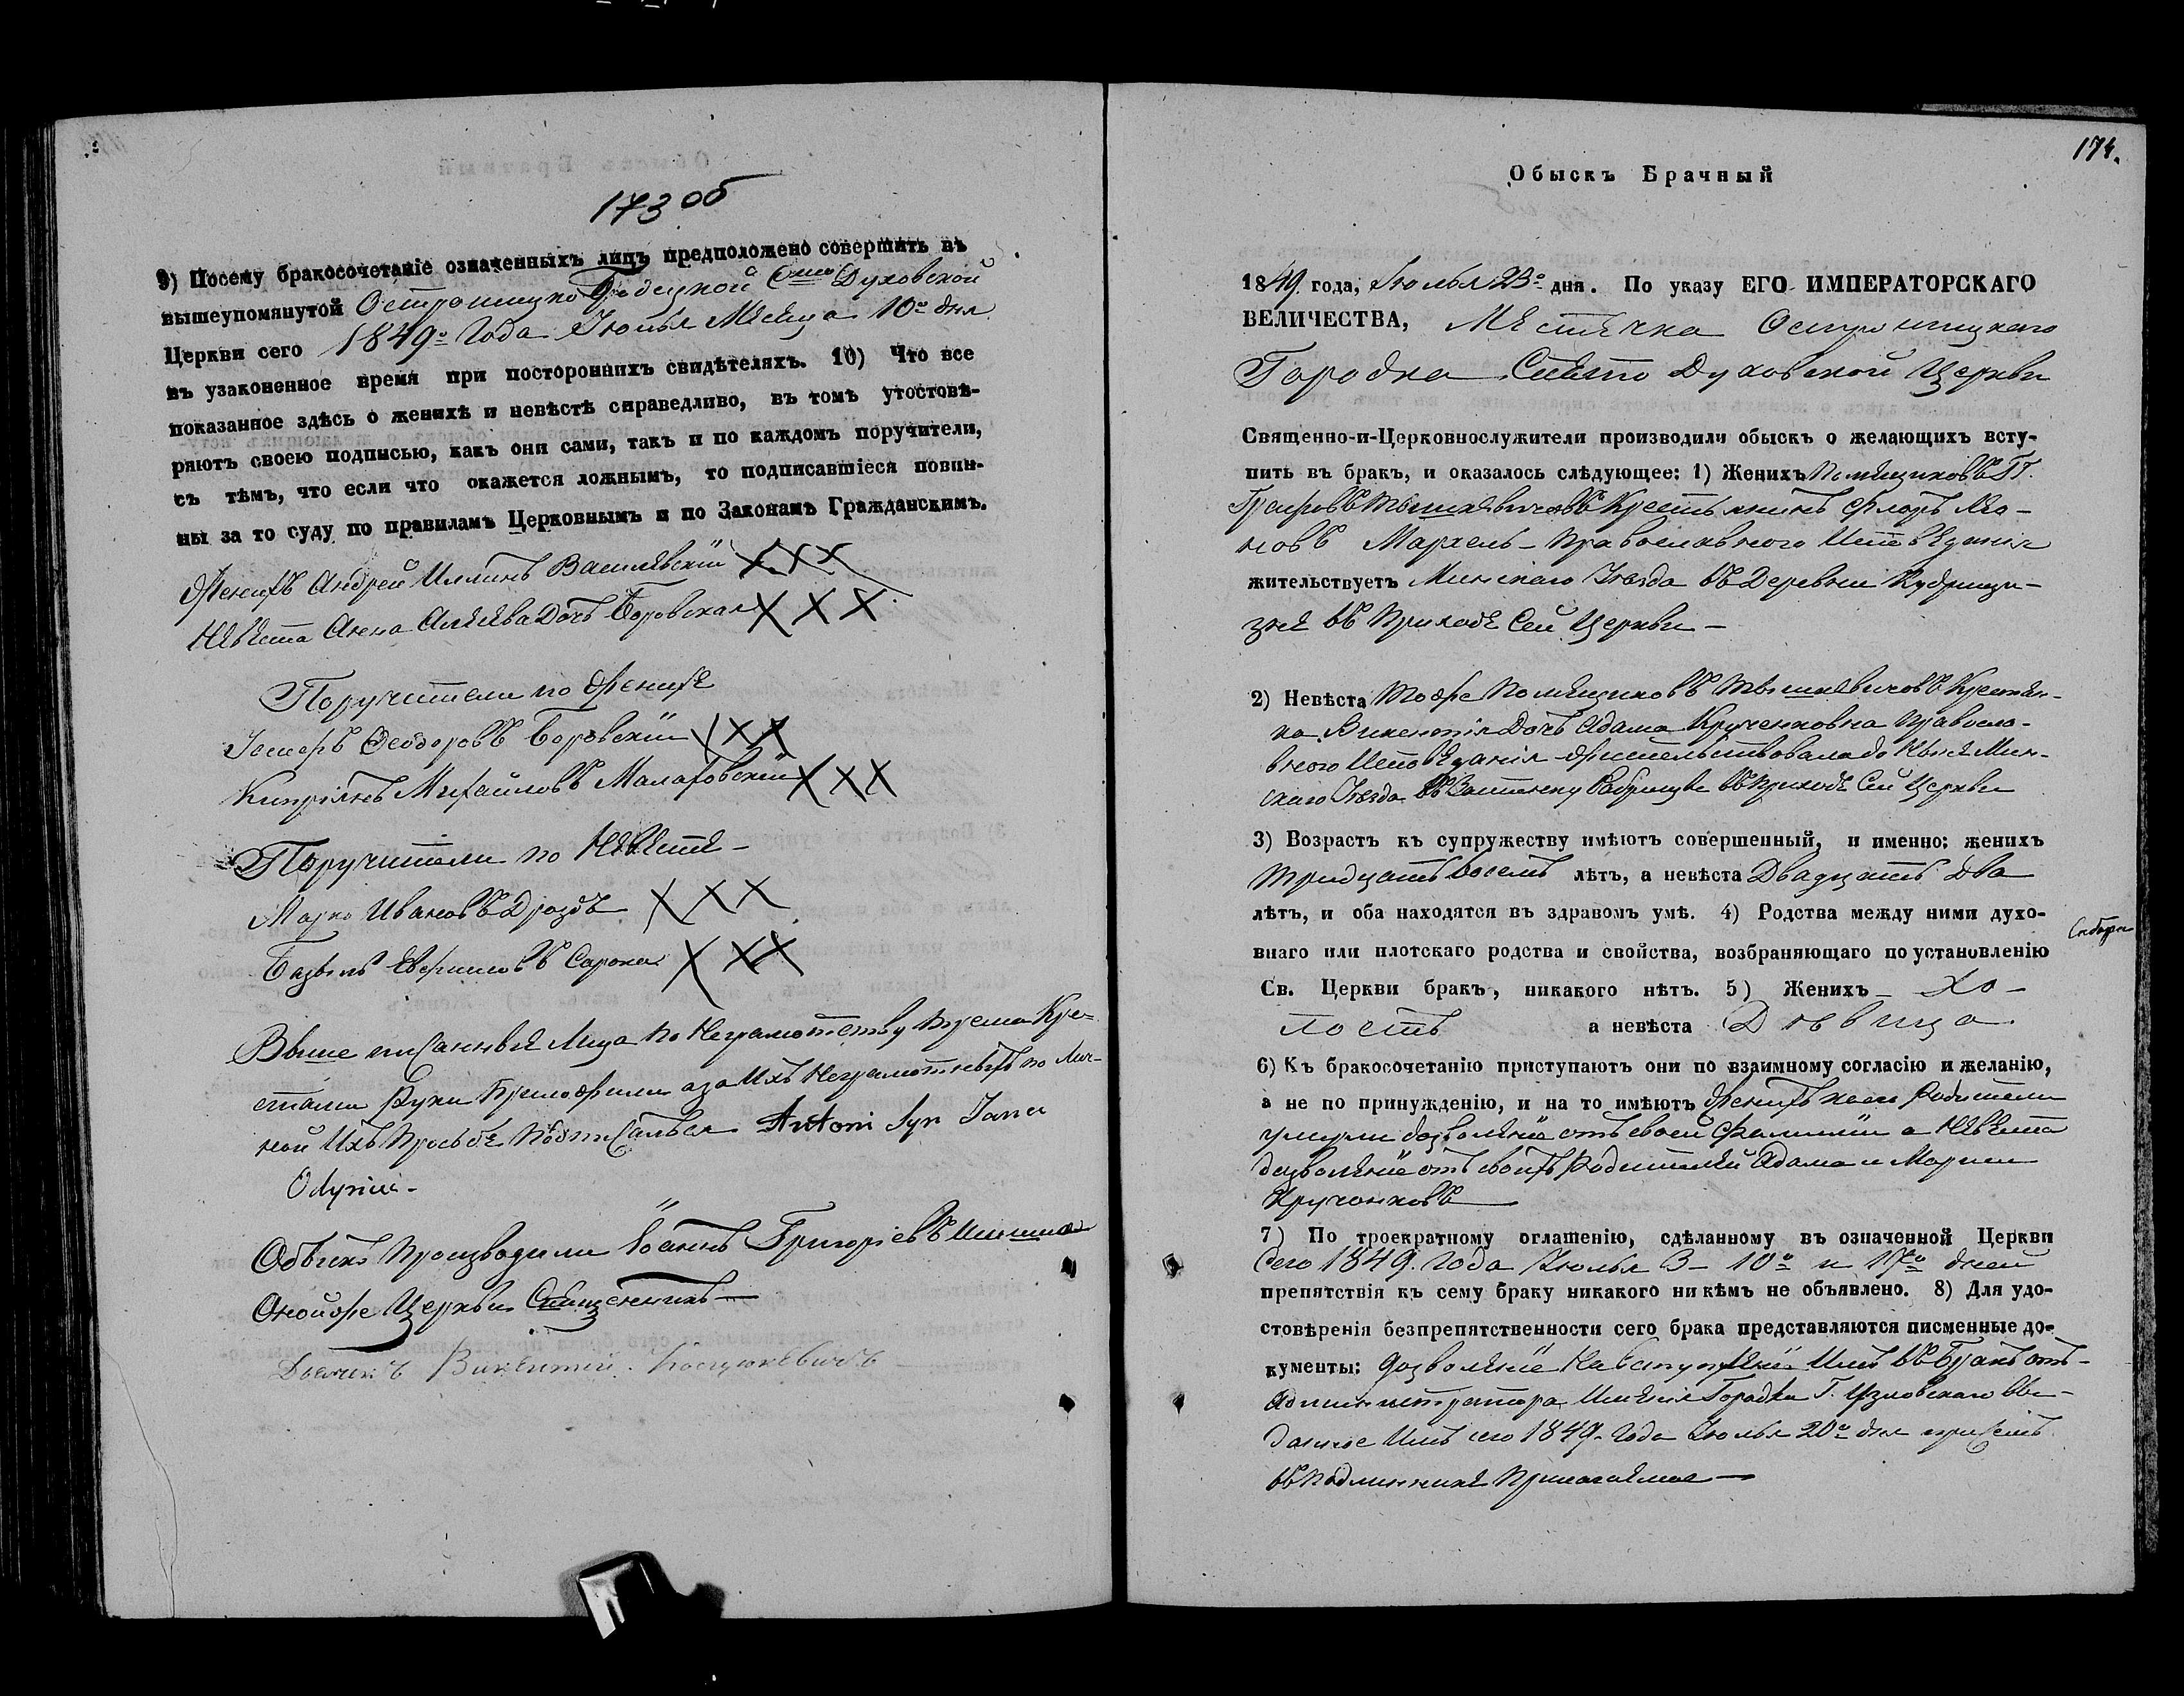 173 об
9) Посему бракосочетаніе означенныхъ лицъ предположено совершить въ
вышеупомянутой Острошицко Городецкой Свято Духовской
Церкви сего 1849го Года Іюлья Месяца 10го дня
въ узаконенное время при постороннихъ свидѣтеляхъ. 10) Что все
показанное здѣсь о женихѣ и невѣстѣ справедливо, въ томъ утостовѣ-
ряютъ своею подписью, какъ они сами, такъ и по каждомъ поручители,
съ тѣмъ, что если что окажется ложнымъ, то подписавшіеся повин-
ны за то суду по правиламъ Церковнымъ и по Законамъ Гражданскимъ.
Женихъ Андрей Иллинъ Василевскій ХХХ
Невеста Анна Дочъ Боровская ХХХ
Поручители по Женихе
Іосифъ Феодоровъ Боровскій ХХХ
Кипріянъ Михайловъ Малаховскій ХХХ
Поручители по Невесте -
Марко Ивановъ Дроздъ ХХХ
Базыль Сарока ХХХ
Выше писанныя Лица по Неграмотству трема Кре-
стами Руки Приложили а за Ихъ Неграмотныхъ по Лич-
ной Ихъ Прозьбе Подписалъся Antoni Syn Jana
Odyniec -
Обыскъ Производили Іоаннъ Григоріевъ
Оной же Церкви Священникъ —
Дьячекъ Викентій
174.
Обыскъ Брачный
1849 года, Іюлья 23го дня. По указу ЕГО ИМПЕРАТОРСКАГО
ВЕЛИЧЕСТВА, Местечка Острошицкаго
Городка Свято Духовской Церкви
Священно-и-Церковнослужители производили обыскъ о желающихъ всту-
пить въ бракъ, и оказалось слѣдующее: 1) Женихъ Помещиковъ ГГ.
Графовъ Тышкевичовъ Крестьянинъ Флоръ Лео-
новъ Мархель - Православного Исповеданія
жительствуетъ Минскаго Уезда въ Деревни Кудрищи-
зне въ Приходе Сей Церкви -
2) Невѣста Тоже Помещиковъ Тышкевичовъ Крестян-
ка Викентія Дочъ Адама Крученковна Правосла-
вного Исповеданія Жительствовала до Ныне Мин-
скаго Уезда въ Застенку въ Приходе Сей Церкви
3) Возрастъ къ супружеству имѣютъ совершенный, и именно: женихъ
Тридцать восемъ лѣтъ, а невѣста Двадцать два
лѣтъ, и оба находятся въ здравомъ умѣ. 4) Родства между ними духо-
внаго или плотскаго родства и свойства, возбраняющаго по установленію
Св. Церкви бракъ, никакого нѣтъ. 5) Женихъ - Хо -
лостъ а невѣста Девица.
6) Къ бракосочетанію приступаютъ они по взаимному согласію и желанію,
а не по принужденію, и на то имѣютъ Женихъ Родители
умерли дозволеніе отъ своей Фамиліи а Невеста
дозволеніе отъ своихъ Родителей Адама и Маріи
Кручонковъ —
7) По троекратному оглашенію, сдѣланному въ означенной Церкви
Сего 1849. Года Іюлья 3- 10го и 17го дней
препятствія къ сему браку никакого ни кѣмъ не объявлено. 8) Для удо-
стовѣренія безпрепятственности сего брака представляются писменные до-
кументы: дозволеніе На вступленіе Имъ въ Бракъ отъ -
Администратора Именія Городка Г. вы-
данное Имъ сего 1849. Года Іюлья 20го дня при семъ
въ Подлиннике Прилагаемое —